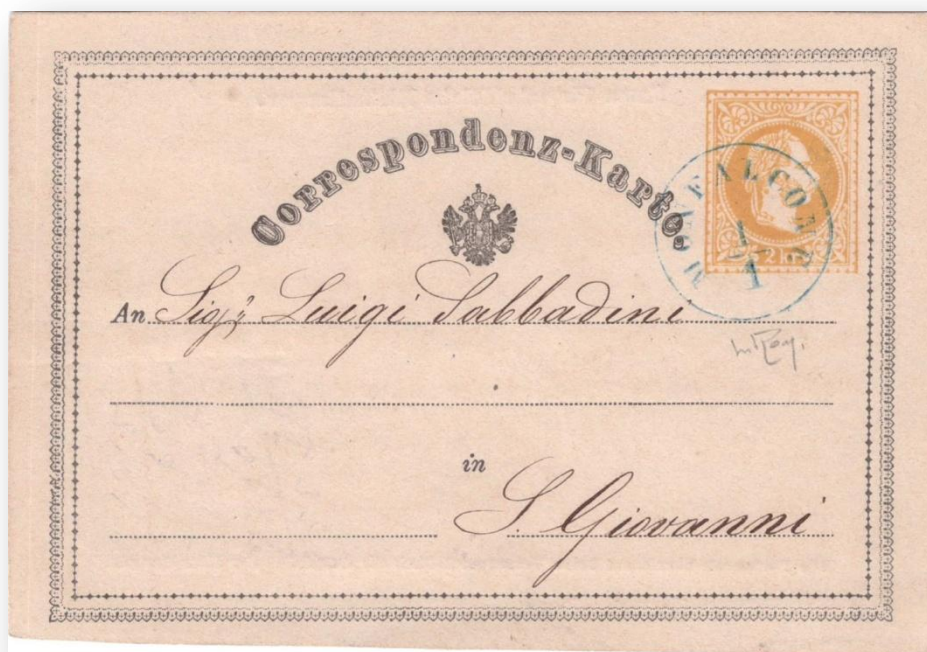 Correspondenz-Karte.
MONFALCONE
1
2
An Sig.r Luigi Sabbadini
in
S. Giovanni